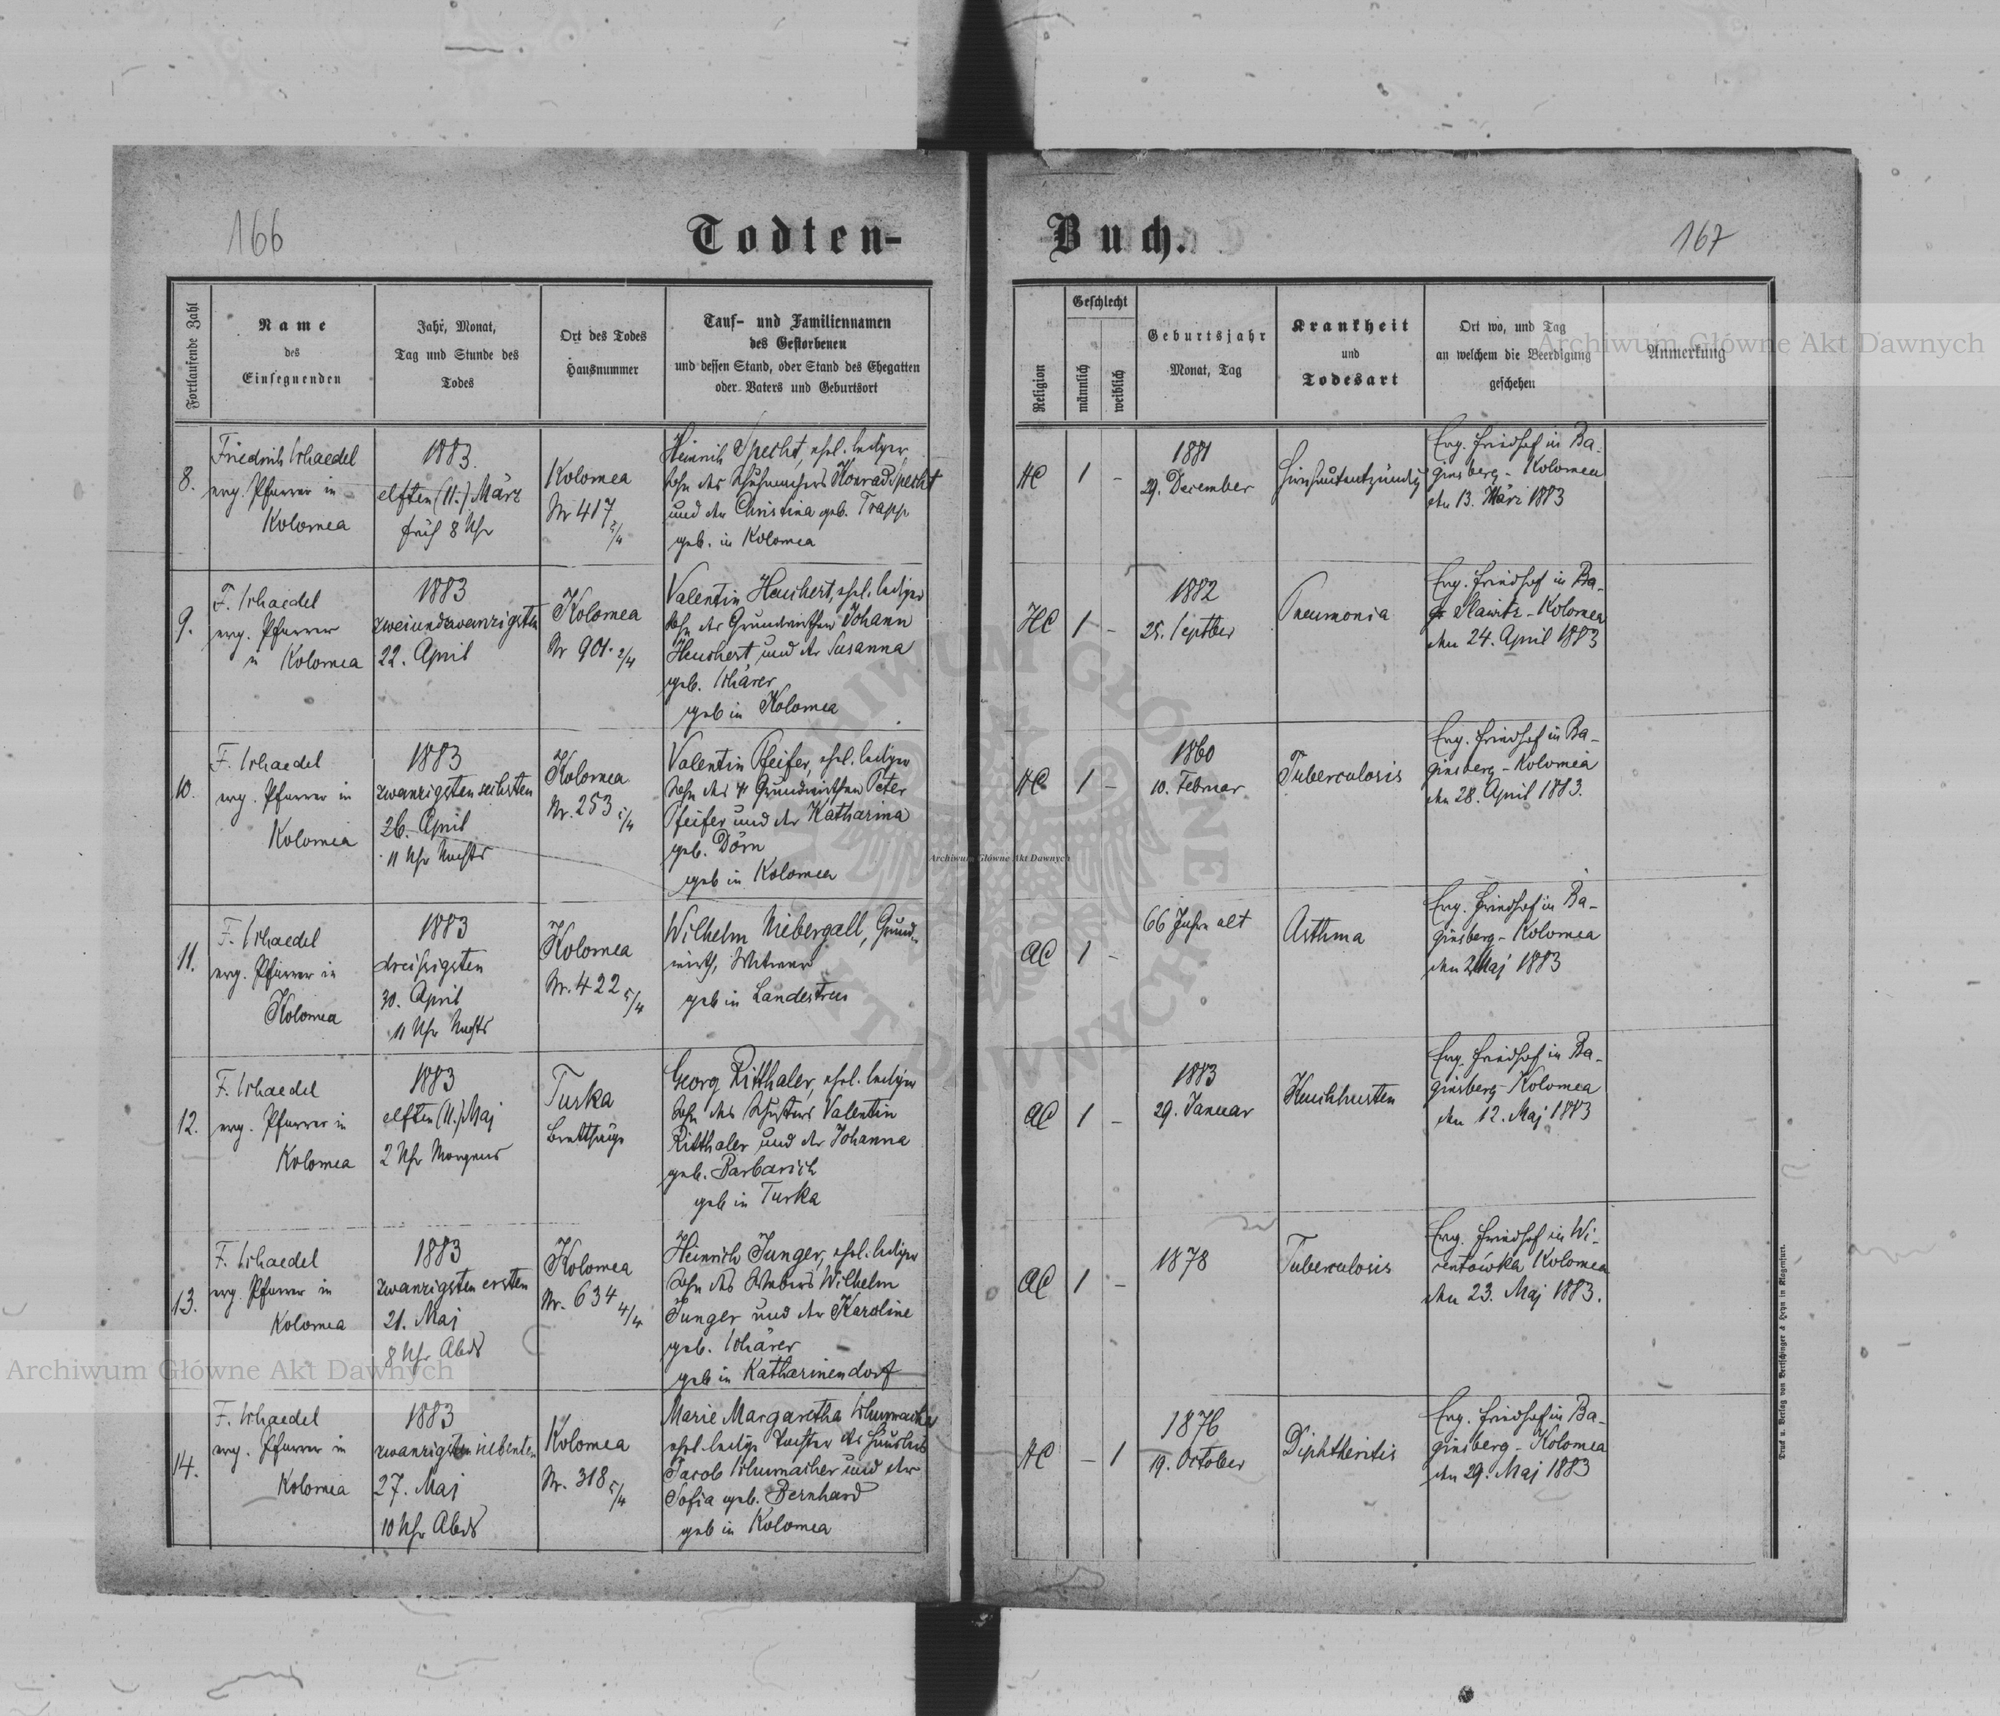 166
Todten-
Buch.
167
Fortlaufende Zahl
Name
des
Einsegnenden
Jahr, Monat,
Tag und Stunde des
Todes
Ort des Todes
Hausnummer
Tauf- und Familiennamen
des Gestorbenen
und dessen Stand, oder Stand des Ehegatten
oder Vaters und Geburtsort
Religion
Geschlecht
männlich
weiblich
Geburtsjahr
Monat, Tag
Krankheit
und
Todesart
Ort wo, und Tag
an welchem die Beerdigung
geschehen
Anmerkung
8.
Friedrich Schaedel
evg. Pfarrer in
Kolomea
1883
elften (11.) März
früh 8 Uhr
Kolomea
Nr 417
Heinrich Specht, ehel. lediger
Sohn des Schuhmachers Konrad Specht
und der Christina geb. Trapp
geb. in Kolomea
HC
1
-
1881
29. December
Hirnhautentzündg
Evg. Friedhof in Ba-
ginsberg - Kolomea
den 13. März 1883
9.
F. Schaedel
evg. Pfarrer
in Kolomea
1883
zweiundzwanzigsten
22. April
Kolomea
Nr 901. 2/4
Valentin Heuchert, ehel. lediger
Sohn des Grundwirthen Johann
Heuchert und der Susanna
geb. Schärer
geb in Kolomea
HC
1
-
1882
25. Septber
Pneumonia
Evg. Friedhof in Ba-
Slawitz - Kolomea
den 24. April 1883
10.
F. Schaedel
evg. Pfarrer in
Kolomea
1883
zwanzigsten sechsten
26. April
11 Uhr Nachts
Kolomea
Nr. 253
Valentin Pfeifer, ehel. lediger
Sohn des Grundwirthen Peter
Pfeifer und der Katharina
geb. Dörn
geb in Kolomea
HC
1
-
1860
10. Februar
Tuberculosis
Evg. Friedhof in Ba-
ginsberg - Kolomea
den 28. April 1883.
11.
F. Schaedel
evg. Pfarrer in
Kolomea
1883
dreißigsten
30. April
11 Uhr Nachts
Kolomea
Nr. 422 5/4
Wilhelm Niebergall, Grund-
wirth, Witwer
geb in Landestreu
AC
1
-
66 Jahre alt
Asthma
Evg. Friedhof in Ba-
ginsberg - Kolomea
den 2 Mai 1883
12.
F. Schaedel
evg. Pfarrer in
Kolomea
1883
elften (11.) Maj
2 Uhr Morgens
Turka
Brettsäge
Georg Ritthaler, ehel. lediger
Sohn des Schusters Valentin
Ritthaler und der Johanna
geb. Barbarich
geb in Turka
AC
1
-
1883
29. Januar
Keuchhusten
Evg. Friedhof in Ba-
ginsberg - Kolomea
den 12. Maj 1883
13.
F. Schaedel
evg. Pfarrer in
Kolomea
1883
zwanzigsten ersten
21. Maj
8 Uhr Abds
Kolomea
Nr. 634 4/4
Heinrich Junger, ehel. lediger
Sohn des Webers Wilhelm
Junger und der Karoline
geb. Schärer
geb in Katharinendorf
AC
1
-
1878
Tuberculosis
Evg. Friedhof in Wi-
Kolomea
den 23. Maj 1883.
14.
F. Schaedel
evg. Pfarrer in
Kolomea
1883
zwanzigsten siebenten
27. Maj
10 Uhr Abds
Kolomea
Nr. 318 5/4
Marie Margaretha Schumacher
ehel. ledige Tochter des
Jacob Schumacher und der
Sofia geb. Bernhard
geb in Kolomea
AC
-
1
1876
19. October
Diphtheritis
Evg. Friedhof in Ba-
ginsberg - Kolomea
den 29. Maj 1883
Druck u. Verlag von Bertschinger & Heyn in Klagenfurt.
Archiwum Główne Akt Dawnych
Archiwum Główne Akt Dawnych
Archiwum Główne Akt Dawnych
ARCHIWUM GŁÓWNE AKT DAWNYCH